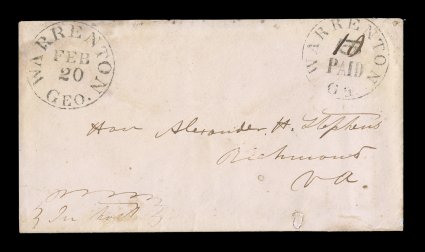 WARRENTON
FEB
20
GEO.
WARRENTON
10
PAID
Ga.
Hon Alexander. H. Stephens
Richmond
Va